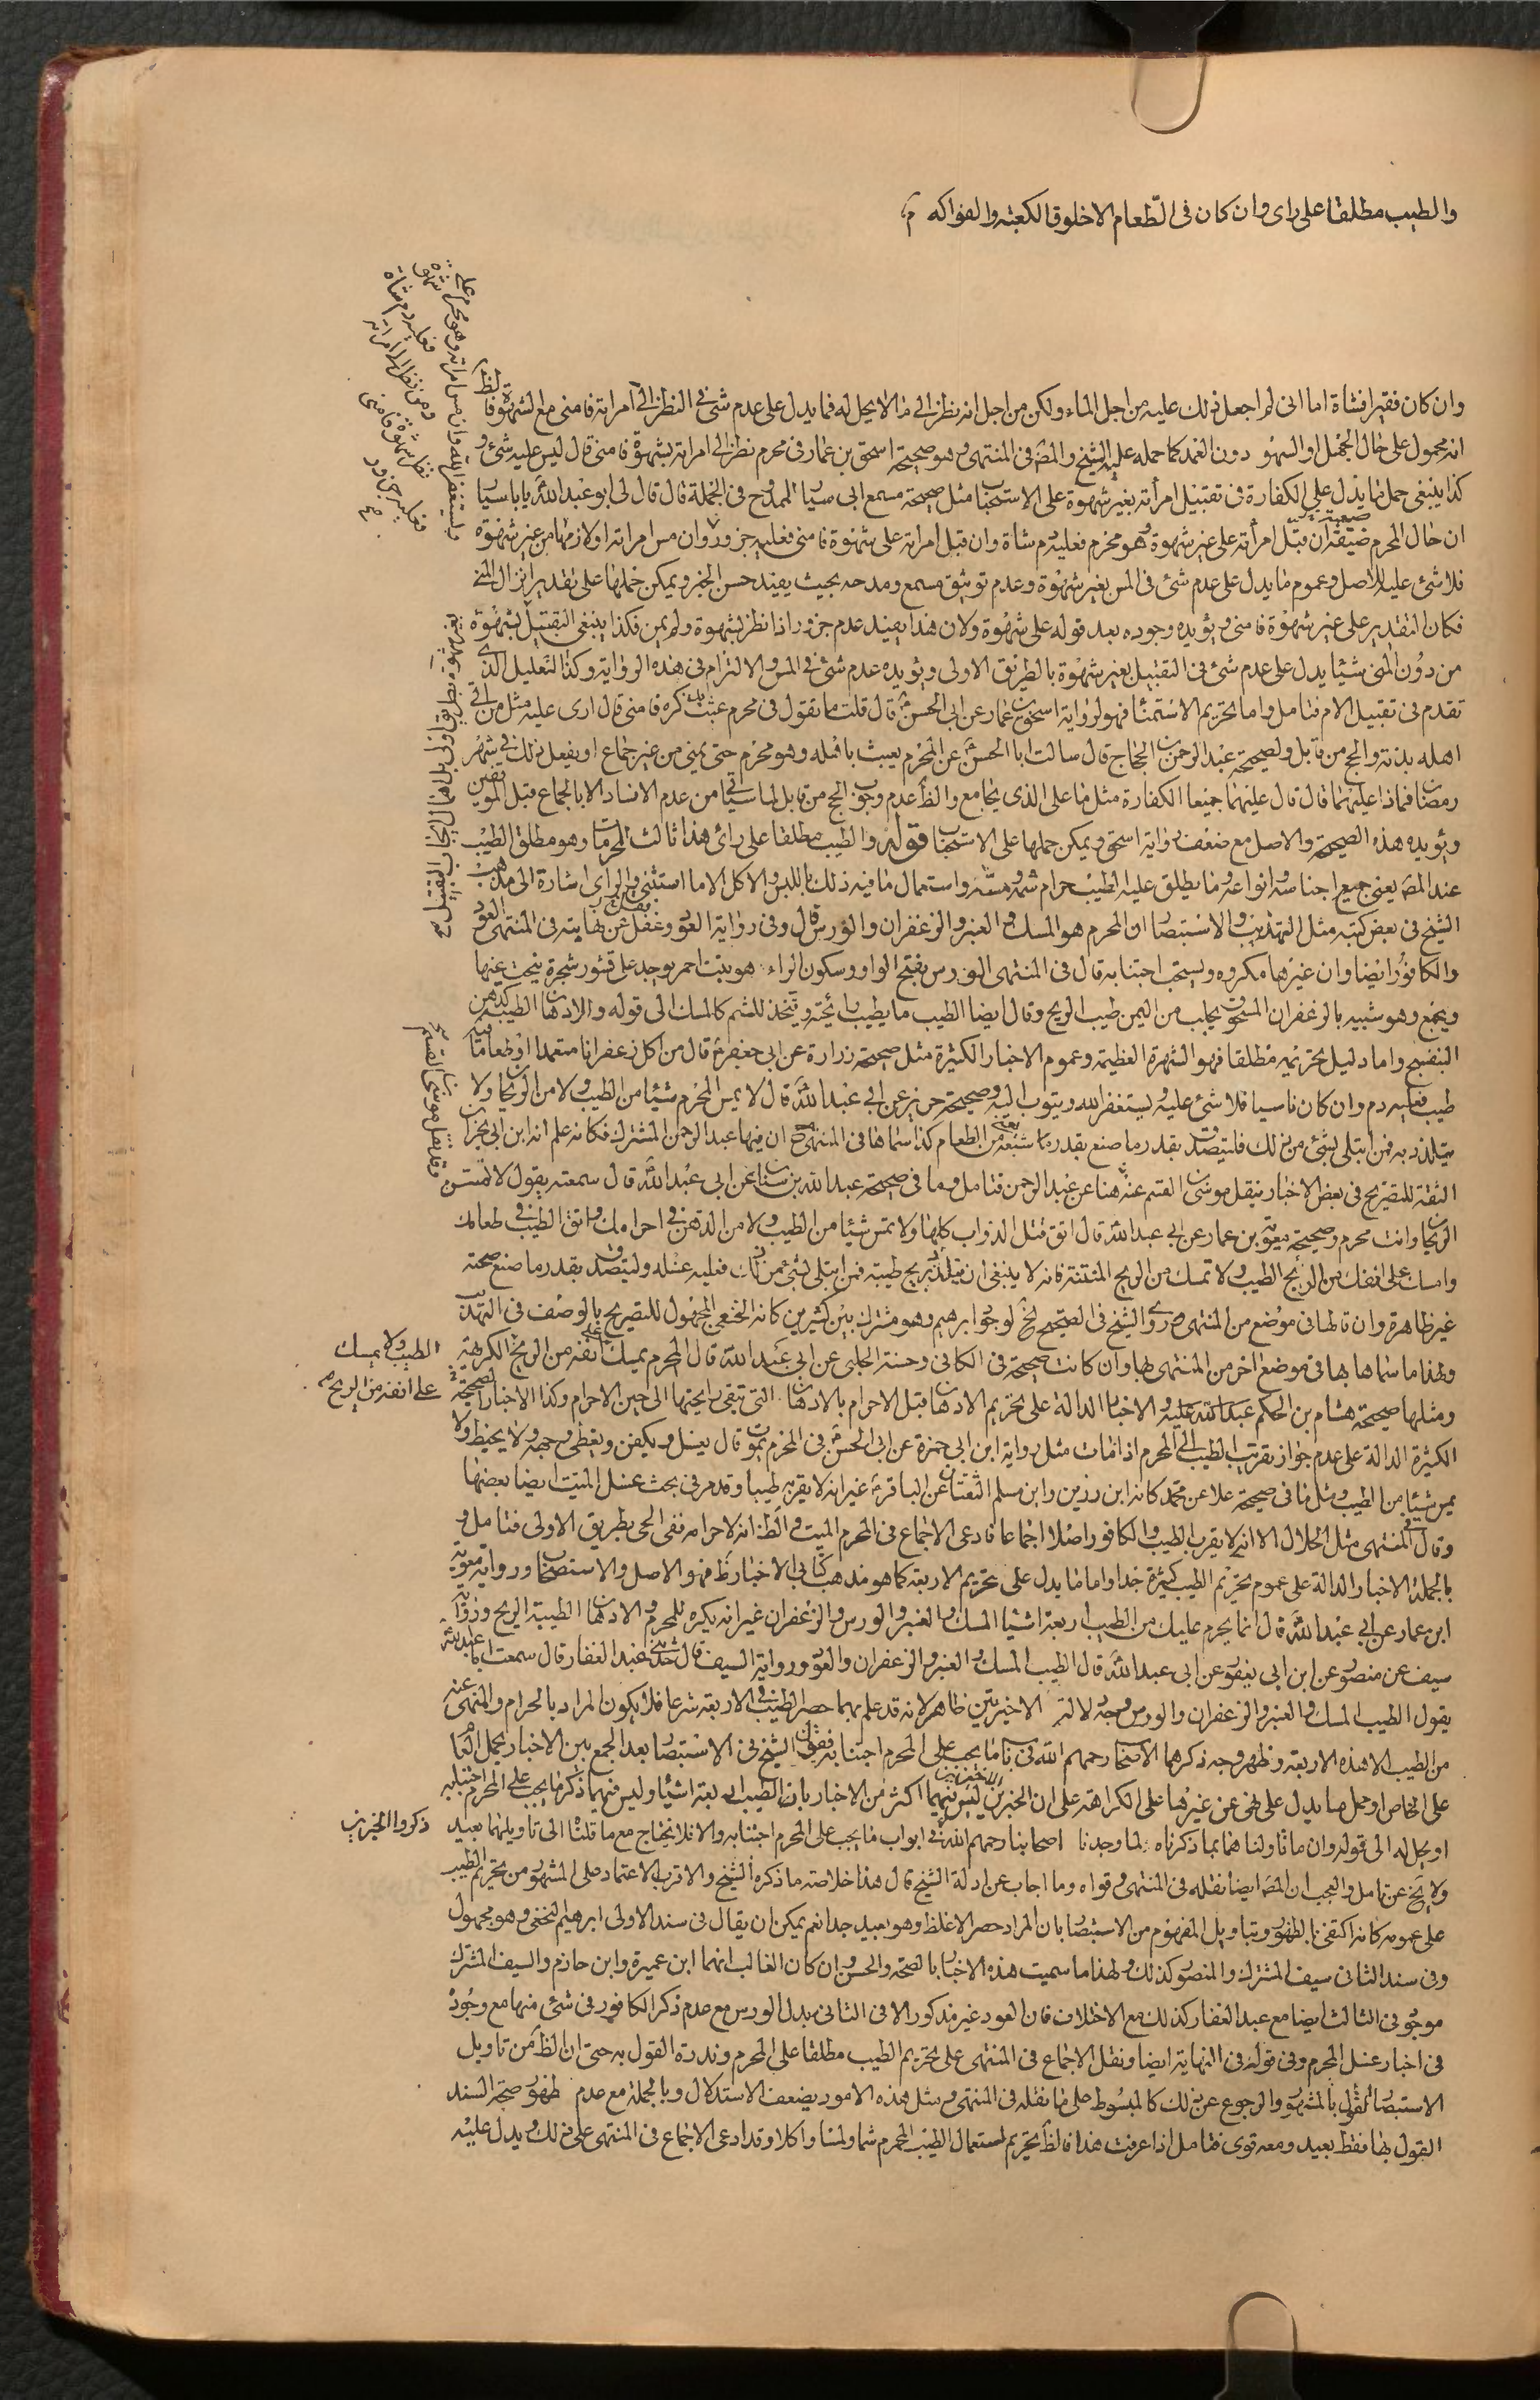 والطيب مطلقا على راى وان كان فى الطعام الا خلوق الكعبة والفواكه
وان كان فقيرا فشاة اما انى لم اجعل ذلك عليه من اجل الماء ولكن من اجل انه نظر الى ما لا يحل له فما يدل على عدم شئ فى النظر الى امراته فامنى مع الشهوة فالظ
انه محمول على حال الجهل او السهو دون العمد كما حمله عليه الشيخ والمصه فى المنتهى وهو صحيحة اسحق بن عمار فى محرم نظر الى امراته بشهوة فامنى قال ليس عليه شئ و
كذا ينبغى حمل ما يدل على الكفارة فى تقبيل امرأته بغير شهوة على الاستحباب مثل صحيحة مسمع ابى سيار الممدوح فى الجملة قال قال لى ابو عبد الله يا با سيار
ان حال المحرم ضيقة ان قبل امرأته على غير شهوة وهو محرم فعليه دم شاة وان قبل امراته على شهوة فامنى فعليه جزور وان مس امراته او لازمها من غير شهوة
فلا شئ عليه للاصل وعموم ما يدل على عدم شئ فى المس بغير شهوة وعدم توثيق مسمع ومدحه بحيث يفيد حسن الخبر ويمكن حملها على تقدير انزال المنى
فكان التقدير على غير شهوة فامنى ويؤيده وجوده بعد قوله على شهوة ولان هذا يفيد عدم جزور اذا نظر بشهوة ولم يمن فكذا ينبغى التقبيل بشهوة
من دون المنى شيئا يدل على عدم شئ فى التقبيل بغير شهوة بالطريق الاولى ويؤيده عدم شئ فى المس والالتزام فى هذه الرواية وكذا التعليل الذى
تقدم فى تقبيل الام فتامل واما تحريم الاستمناء فهو لرواية اسحق بن عمار عن ابى الحسن قال قلت ما تقول فى محرم عبث بذكره فامنى قال ارى عليه مثل من اتى
اهله بدنة والحج من قابل ولصحيحة عبد الرحمن بن الحجاج قال سالت ابا الحسن عن المحرم يعبث باهله وهو محرم حتى يمنى من غير جماع او يفعل ذلك فى شهر
رمضان فماذا عليهما قال قال عليهما جميعا الكفارة مثل ما على الذى يجامع والظ عدم وجوب الحج من قابل لما سياتى من عدم الافساد الا بالجماع قبل الموقفين
ويؤيده هذه الصحيحة والاصل مع ضعف رواية اسحق ويمكن حملها على الاستحباب قوله والطيب مطلقا على راى هذا ثالث المحرمات وهو مطلق الطيب
عند المصه يعنى جميع اجناسه وانواعه وما يطلق عليه الطيب حرام شمه ومسه واستعمال ما فيه ذلك باللبس والاكل الا ما استثنى والراى اشارة الى مذهب
الشيخ فى بعض كتبه مثل التهذيب والاستبصار ان المحرم هو المسك والعنبر والزعفران والورس قال وفى رواية العود ونقل عن نهايته فى المنتهى العود
والكافور ايضا وان غيرها مكروه ويستحب اجتنابه قال فى المنتهى الورس بفتح الواو وسكون الراء هو نبت احمر يوجد على قشور شجرة ينحت عنها
ويجمع وهو شبيه بالزعفران المسحوق يجلب من اليمن طيب الريح وقال ايضا الطيب ما يطيب رائحته ويتخذ للشم كالمسك الى قوله والادهان الطيبة كدهن
البنفسج واما دليل تحريمه مطلقا فهو الشهرة العظيمة وعموم الاخبار الكثيرة مثل صحيحة زرارة عن ابى جعفر قال من اكل زعفرانا متعمدا او طعاما فيه
طيب فعليه دم وان كان ناسيا فلا شئ عليه ويستغفر الله ويتوب اليه وصحيحة حريز عن ابى عبد الله قال لا يمس المحرم شيئا من الطيب ولا من الريحان ولا
يتلذذ به فمن ابتلى بشئ من ذلك فليتصدق بقدر ما صنع بقدر ما شبعه من الطعام كذا سماها فى المنتهى ان فيها عبد الرحمن المشترك فكانه علم انه ابن ابى نجران
الثقة للتصريح فى بعض الاخبار بنقل موسى بن القسم عنه هنا عن عبد الرحمن فتامل وما فى صحيحة عبد الله بن سنان عن ابى عبد الله قال سمعته يقول لا تمس
الريحان وانت محرم وصحيحة معوية بن عمار عن ابى عبد الله قال اتق قتل الدواب كلها ولا تمس شيئا من الطيب ولا من الدهن فى احرامك واتق الطيب فى طعامك
وامسك على انفك من الريح الطيبة ولا تمسك من الريح المنتنة فانه لا ينبغى ان يتلذذ بريح طيبة فمن ابتلى بشئ من ذلك فعليه غسله وليتصدق بقدر ما صنع صحته
غير ظاهرة وان قالها فى موضع من المنتهى ورواه الشيخ فى الصحيح لوجود ابرهيم وهو مشترك بين كثيرين كانه النخعى المجهول للتصريح بالوصف فى التهذيب
ولهذا ما سماها بها فى موضع اخر من المنتهى وان كانت صحيحة فى الكافى وحسنة الحلبى عن ابى عبد الله قال المحرم يمسك على انفه من الريح الكرهية
ومثلها صحيحة هشام بن الحكم عبد الله عليه والاخبار الدالة على تحريم الادهان قبل الاحرام بالادهان التى تبقى رايحتها الى حين الاحرام وكذا الاخبار الصحيحة
الكثيرة الدالة على عدم جواز تقريب الطيب الى المحرم اذا مات مثل رواية ابن ابى حمزة عن ابى الحسن فى المحرم يموت قال يغسل ويكفن ويغطى وجهه ولا يحنط ولا
يمس شيئا من الطيب ومثل ما فى صحيحة علا عن محمد كانه ابن رزين وابن مسلم الثقتان عن الباقر غير انه لا يقربه طيبا وقد مر فى بحث غسل الميت ايضا بعضها
وقال فى المنتهى مثل الحلال الا انه لا يقرب الطيب والكافور اصلا اجماعا فادعى الاجماع فى المحرم الميت والظ انه لاحرامه ففى الحى بطريق الاولى فتامل و
بالجملة الاخبار الدالة على عموم تحريم الطيب كثيرة جدا واما ما يدل على تحريم الاربعة كما هو مذهب كتابى الاخبار ظ فهو الاصل والاستصحاب ورواية معوية
ابن عمار عن ابى عبد الله قال انما يحرم عليك من الطيب اربعة اشيا المسك والعنبر والورس والزعفران غير انه يكره للمحرم والادهان الطيبة الريح ورواية
سيف عن منصور عن ابن ابى يعفور عن ابى عبد الله قال الطيب المسك والعنبر والزعفران والعود ورواية السيف قال حدثنى عبد الغفار قال سمعت ابا عبد الله
يقول الطيب المسك والعنبر والزعفران والورس وجه دلالة الاخيرتين ظاهر لانه قد علم بهما حصر الطيب فى الاربعة شرعا فلا يكون المراد بالحرام والمنهى عنه
من الطيب الا هذه الاربعة وظهر وجه ذكرها الاصحاب رحمهم الله فى باب ما يجب على المحرم اجتنابه فقول الشيخ فى الاستبصار بعد الجمع بين الاخبار بحمل العام
على الخاص او حمل ما يدل على نهى عن غيرها على الكراهة على ان الخبرين الاخيرين ليس فيهما اكثر من الاخبار بان الطيب اربعة اشيا وليس فيهما ذكر ما يجب على المحرم اجتنابه
او يحل له الى قوله وان ما تاولناهما بما ذكرناه لما وجدنا اصحابنا رحمهم الله فى ابواب ما يجب على المحرم اجتنابه والا فلا يحتاج مع ما قلنا الى تاويلهما بعيد
ولا يخ عن تامل والعجب ان المصه ايضا نقله فى المنتهى وقواه وما اجاب عن ادلة الشيخ قال هذا خلاصة ما ذكره الشيخ والاقرب الاعتماد على المشهور من تحريم الطيب
على عمومه كانه اكتفى بالظهور وبتاويل المفهوم من الاستبصار بان المراد حصر الاغلظ وهو بعيد جدا نعم يمكن ان يقال فى سند الاولى ابرهيم النخعى وهو مجهول
وفى سند الثانى سيف المشترك والمنصور كذلك ولهذا ما سميت هذه الاخبار بالصحة والحسن وان كان الغالب انهما ابن عميرة وابن حازم والسيف المشترك
موجود فى الثالث ايضا مع عبد الغفار كذلك مع الاختلاف فان العود غير مذكور الا فى الثانى بدل الورس مع عدم ذكر الكافور فى شئ منها مع وجوده
فى اخبار غسل المحرم وفى قوله فى النهاية ايضا ونقل الاجماع فى المنتهى على تحريم الطيب مطلقا على المحرم وندرة القول به حتى ان الظ من تاويل
الاستبصار القول بالمشهور والرجوع عن ذلك كالمبسوط على ما نقله فى المنتهى ومثل هذه الامور يضعف الاستدلال وبالجملة مع عدم ظهور صحة السند
القول بها فقط بعيد ومعه قوى فتامل اذا عرفت هذا فالظ تحريم استعمال الطيب للمحرم شما ولمسا واكلا وقد ادعى الاجماع فى المنتهى على ذلك ويدل عليه
فعليه دم شاة
ومن نظر الى امراته
نظر شهوة فامنى
فعليه جزور
ويستغفر الله وان مس امراته وهو محرم على شهوة
بغير شهوة بطريق اولى بل هنا ايجاب التقبيل
الطيب ولا يمسك
على انفه من الريح
ذكروا الخبرين